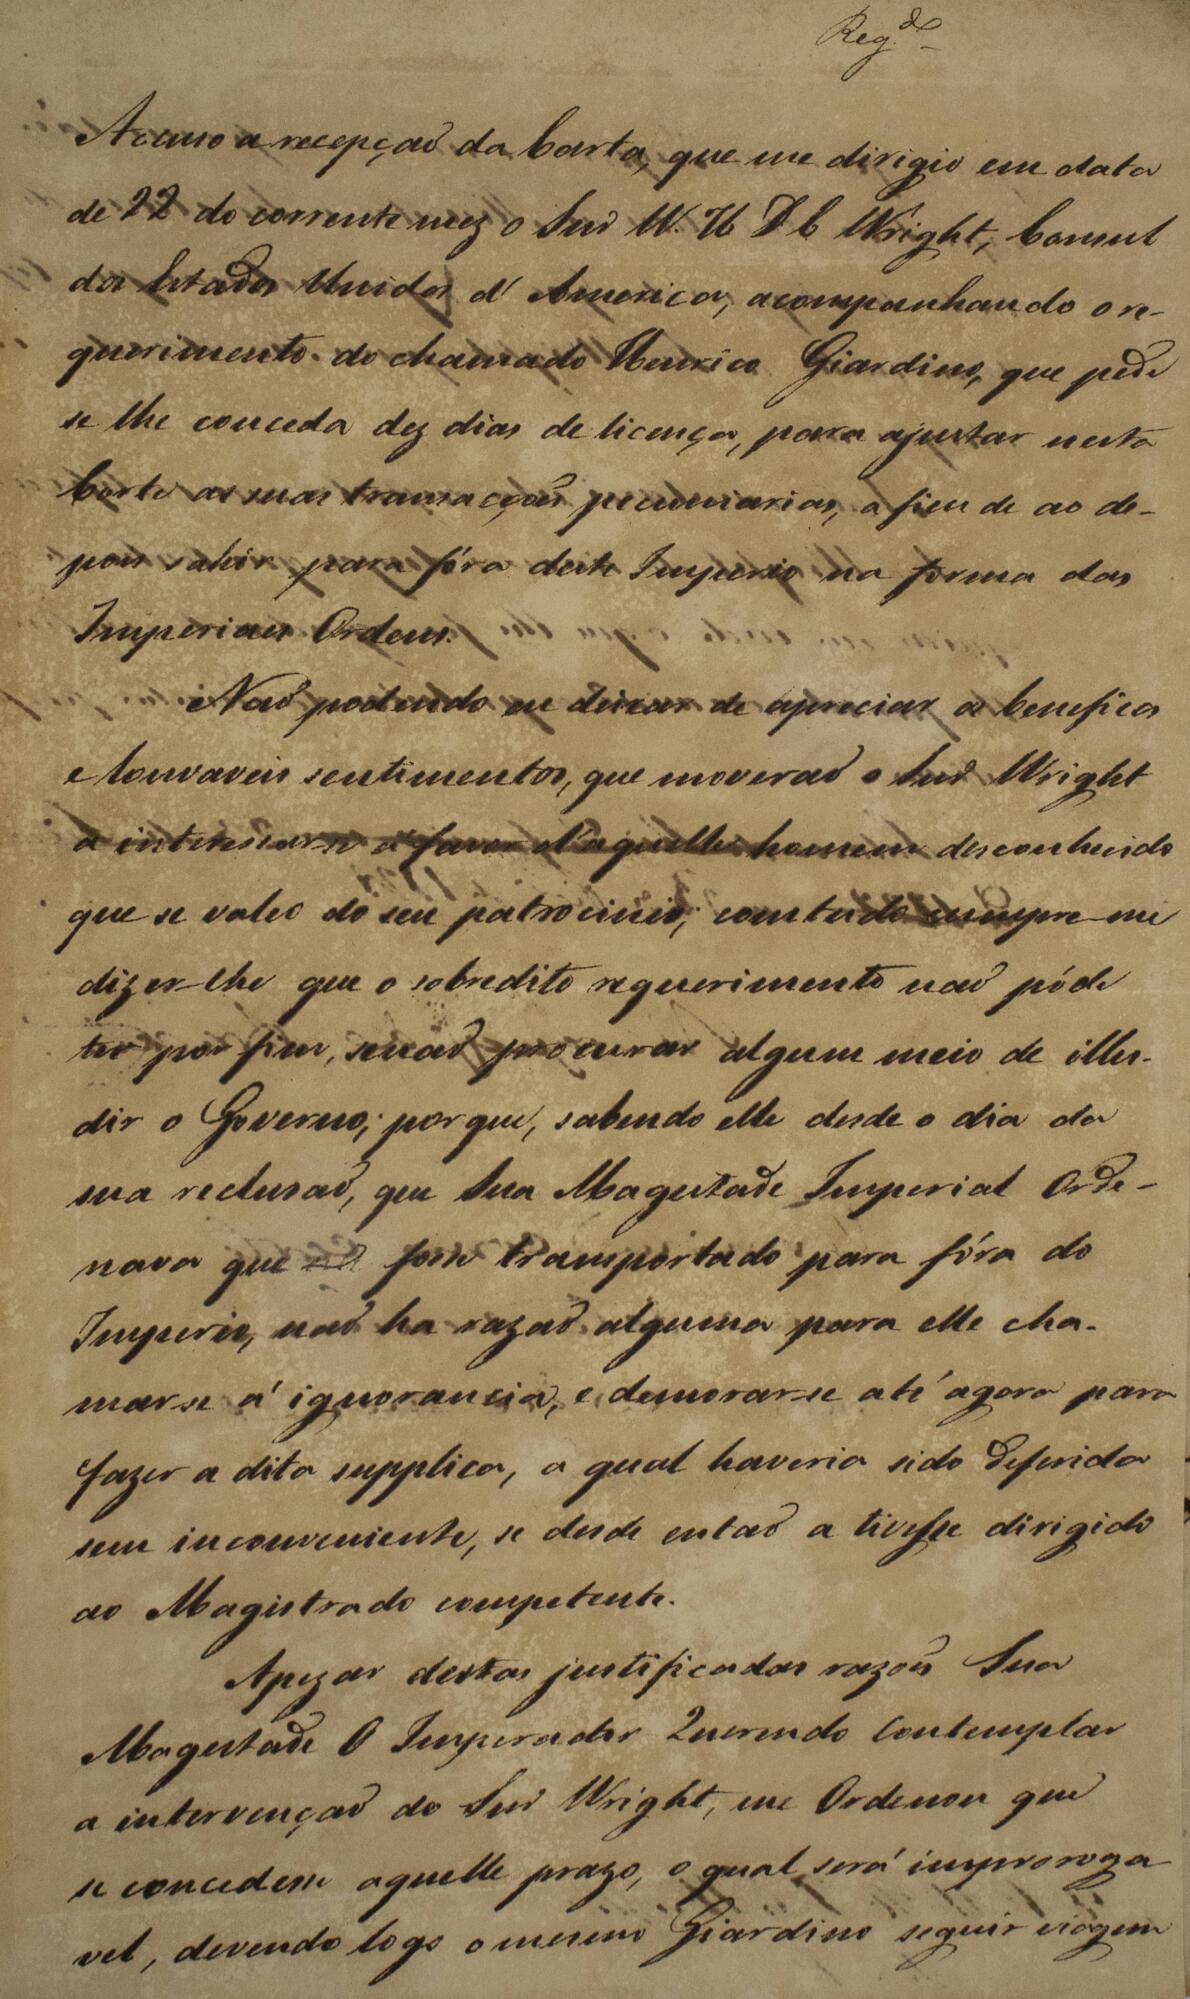 Reg.do
Accuso a recepçaõ da Carta, que me dirigio em data
de 22 do corrente mez o Snr W. H D C Wright, Consul
dos Estados Unidos d'America, acompanhando o re-
querimento do chamado Henrico Giardino, que pede
se lhe conceda dez dias de licença, para ajustar nesta
Corte as suas transacções pecuniarias, a fim de ao de-
pois sahir para fóra deste Imperio na forma das
Imperiaes Ordens.
Naõ podendo eu deixar de apreciar os beneficos
e louvaveis sentimentos, que moveraõ o Snr Wright
a interessar-se a favor d'aquelle homem desconhecido
que se valeo do seu patrocinio; comtudo cumpre-me
dizer-lhe que o sobredito requerimento naõ póde
ter por fim, senaõ procurar algum meio de illu-
dir o Governo; porque, sabendo elle desde o dia da
sua reclusaõ, que Sua Magestade Imperial Orde-
nava que fosse transportado para fóra do
Imperio, naõ ha razaõ alguma para elle cha-
mar-se á ignorancia, e demorar-se até agora para
fazer a dita supplica, a qual haveria sido deferida
sem inconveniente, se desde entaõ a tivesse dirigido
ao Magistrado competente.
Apezar destas justificadas razões Sua
Magestade O Imperador Querendo Contemplar
a intervençaõ do Snr Wright, me Ordenou que
se concedesse aquelle prazo, o qual será improroga
vel, devendo logo o mesmo Giardino seguir viagem